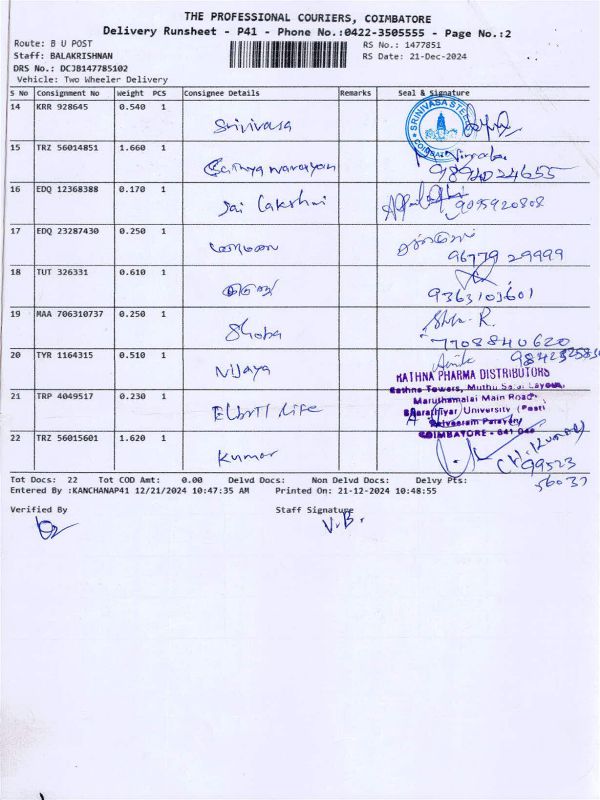 THE PROFESSIONAL COURIERS, COIMBATORE
Delivery Runsheet - P41 - Phone No.:0422-3505555 - Page No.:2
Route: B U POST RS No.: 1477851
Staff: BALAKRISHNAN RS Date: 21-Dec-2024
DRS No.: DCJB147785102
Vehicle: Two Wheeler Delivery
S No Consignment No Weight PCS Consignee Details Remarks Seal & Signature
14 KRR 928645 0.540 1
Srinivasa SRINIVASA STEEL
15 TRZ 56014851 1.660 1
Sathya narayan 9894024655
16 EDQ 12368388 0.170 1
Sai Lakshmi 9095920808
17 EDQ 23287430 0.250 1
96779 29999
18 TUT 326331 0.610 1
9363103601
19 MAA 706310737 0.250 1
Shoba 7708840620
20 TYR 1164315 0.510 1
Vijaya
RATHNA PHARMA DISTRIBUTORS
Rathna Towers, Muthu Layout,
21 TRP 4049517 0.230 1 Maruthamalai Main Road,
Life Bharathiyar University (Post)
COIMBATORE - 641 046
22 TRZ 56015601 1.620 1
Kumar 99523
56037
Tot Docs: 22 Tot COD Amt: 0.00 Delvd Docs: Non Delvd Docs: Delvy Pts:
Entered By :KANCHANAP41 12/21/2024 10:47:35 AM Printed On: 21-12-2024 10:48:55
Verified By Staff Signature
V.B.